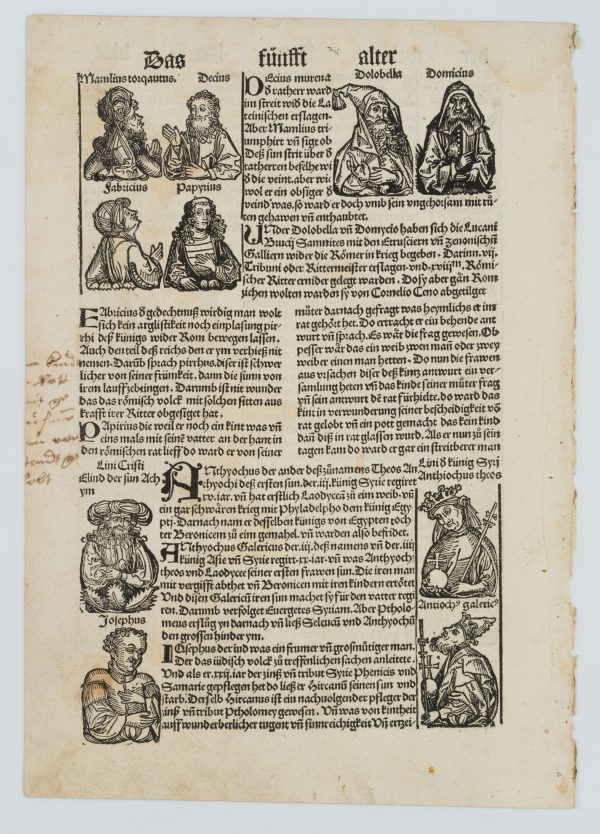 Das fünfft alter
Mamlius torqautus. Decius
Dolobella Domicius
Fabricius Papyrius
DEcius murena
ð ratherr ward
im streit wið die La
teinischen erslagen.
Aber Mamlius tri⸗
umphirt vñ sigt ob
Deß sun strit über ð
ratherren beselhe wi
ð die veint. aber wie
wol er ein obsiger ð
veind was. so ward er doch vmb sein vngehorsam mit rů⸗
ten gehawen vñ enthaubtet.
UNder Dolobella vñ Domycio haben sich die Lucani
Brucij Samnites mit den Etrusciern vñ zenonischñ
Galliern wider die Römer in krieg begeben. Darinn .vij.
Tribuni oder Rittermeister erslagen. vnd .xviijᵐ. Römi⸗
scher Ritter ernider gelegt warden. Do sy aber gän Rom
zichen wolten warden sy von Cornelio Ceno abgetilget
FAbricius ð gedechtnuß wirdig man wolt
sich kein arglistikeit noch einplasung pir⸗
rhi deß künigs wider Rom bewegen lassen.
Auch den teil deß reichs den er ym verhieß nit
nemen. Darüb sprach pirrhus. diser ist schwer
licher von seiner frümkeit. dann die sunn von
irem lauff zebringen. Darumb ist nit wunder
das das römisch volck mit solchen sitten aus
krafft irer Ritter obgesiget hat.
PApirius die weil er noch ein kint was vñ
eins mals mit seinē vatter an der hant in
den römischen rat lieff do ward er von seiner
můter darnach gefragt was heymlichs er im
rat gehöret het. Do ertracht er ein behende ant
wurt vñ sprach. Es wär die frag gewesen. Ob
pesser wär das ein weib zwon man oder zwey
weiber einen man hetten. Do nun die frawen
aus vrsachen diser deß kintz antwurt ein ver⸗
samlung heten vñ das kinde seiner můter frag
vñ sein antwurt dē rat fürhielte. do ward das
kint in verwunderung seiner bescheidigkeit võ
rat gelobt vñ ein pott gemacht das kein kind
dañ diß in rat glassen wurd. Als er nun zů sein
tagen kam do ward er gar ein streitberer man
Lini Cristi
Elind der sun Ach
ym
Josephus
ANthyochus der ander deß zůnamens Theos An
thyochi deß ersten sun. der .iij. künig Syrie regiret
xv. iar. vñ hat erstlich Laodyceā zu eim weib. vñ
ein gar schwären krieg mit Phyladelpho dem künig Egy
pti. Darnach nam er desselben künigs von Egypten toch
ter Beronicem zů eim gemahel. vñ warden also befridet.
ANthyochus Galericus der .iij. deß namens vñ der .iiij
künig Asie vñ Syrie regirt .xx. iar. vñ was Anthyoch⸗
theos vnd Laodycee seiner ersten frawen sun. Die iren man
mit vergifft abthet vñ Beronicen mit iren kindern ertötet
Vnd disen Galericū iren sun machet sy für den vatter regi
ren. Darumb verfolget Euergetes Syriam. Aber Ptholo⸗
meus erslůg yn darnach vñ ließ Seleucū vnd Anthyochū
den grossen hinder ym.
IOsephus der iud was ein frumer vñ großmütiger man.
Der das iüdisch volck zů treffenlichen sachen anleitete.
Vnd als er .xxij. iar der zinß vñ tribut Syrie Phenicis vnd
Samarie gepflegen het do ließ er Hircanū seinen sun vnd
starb. Derselb Hircanus ist ein nachuolgender pfleger der
zinß vñ tribut Ptholomey gewesen. Vñ was von kintheit
auff wunderberlicher tugent vñ sinnreichigkeit Vñ ertzei⸗
Lini ð künig Syrij
Anthiochus theos
Antiochꝰ galericꝰ